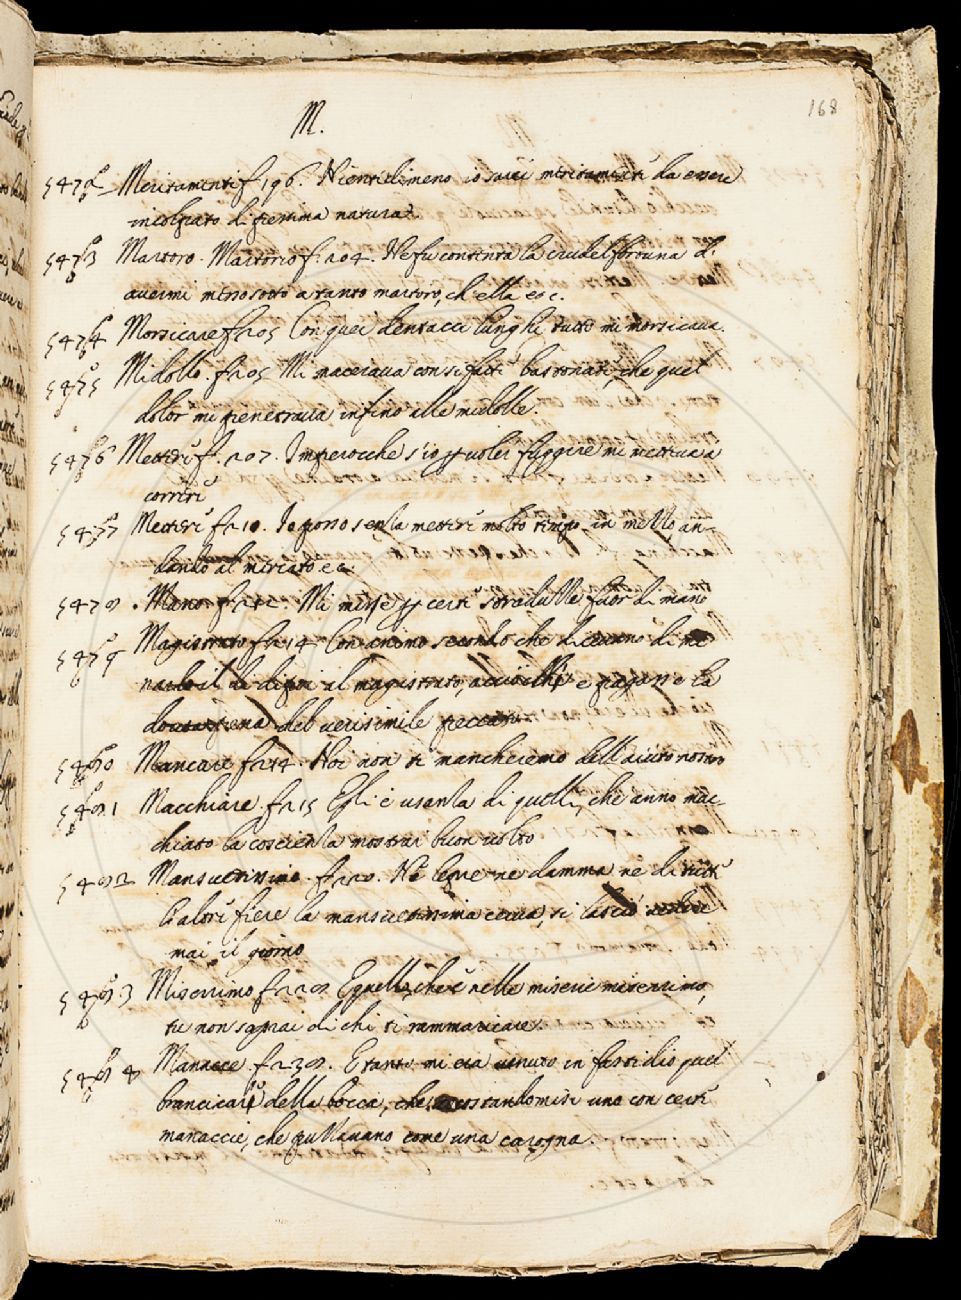 168
M.
5472 Meritamente f 196. Nientedimeno io sarei meritamente da essere
incolpato di pessima natura.
5473 Martoro. Martorio f. 204. Ne fu contenta la crudel fortuna di
avermi messo sotto a tanto martoro, ch'ella ec.
5474 Morsicare f 205 Con quei dentacci lunghi tutto mi morsicava.
5475 Midollo. f 205 Mi macerava con sì fatte bastonate, che quel
dolor mi penetrava infino alle midolle.
5476 Mettere f. 207. Imperocche s'io volei fuggire mi metteva a
correre
5477 Mettere f 210. Io posso senza mettere molto tempo in mezzo an-
dando al mercato ec
5478. Mano f 212. Mi misse certe stradelle fuor di mano
5479 Magistrato f 214 Con animo secondo che dicevano di me
narlo il dì dipoi al magistrato, acciò e pagasse la
pena del verisimile peccato
5480 Mancare f 214. Noi non ti mancheremo dell'aiuto nostro
5481 Macchiare. f 215 Egli è usanza di quelli, che anno mac-
chiato la coscienza mostrar buon volto
5482 Mansuetissimo. f 220. Nè lepre ne damma ne di tutte
l'altre fiere la mansuetissima cerva, si lasciò vedere
mai il giorno
5483 Miserrimo f 228 E quello, che è nelle miserie miserrimo,
tu non saprai di chi ti rammaricare.
5484 Manacce f 238. E tanto mi era venuto in fastidio quel
brancicare della bocca, che accostandomisi uno con certe
manaccie, che puzzavano come una carogna.